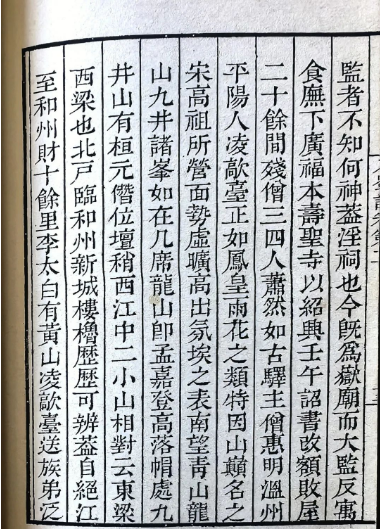 監者不知何神蓋淫祠也今旣爲嶽廟而大監反寓
食廡下廣福本壽聖寺以紹興壬午詔書改額敗屋
二十餘間殘僧三四人蕭然如古驛主僧惠明溫州
平陽人凌歊臺正如鳳皇雨花之類特因山巔名之
宋高祖所營面勢虛曠高出氛埃之表南望靑山龍
山九井諸峯如在几席龍山卽孟嘉登高落帽處九
井山有桓元僭位壇稍西江中二小山相對云東梁
西梁也北戸臨和州新城樓櫓歷歷可辨蓋自絕江
至和州財十餘里李太白有黃山凌歊臺送族弟泛